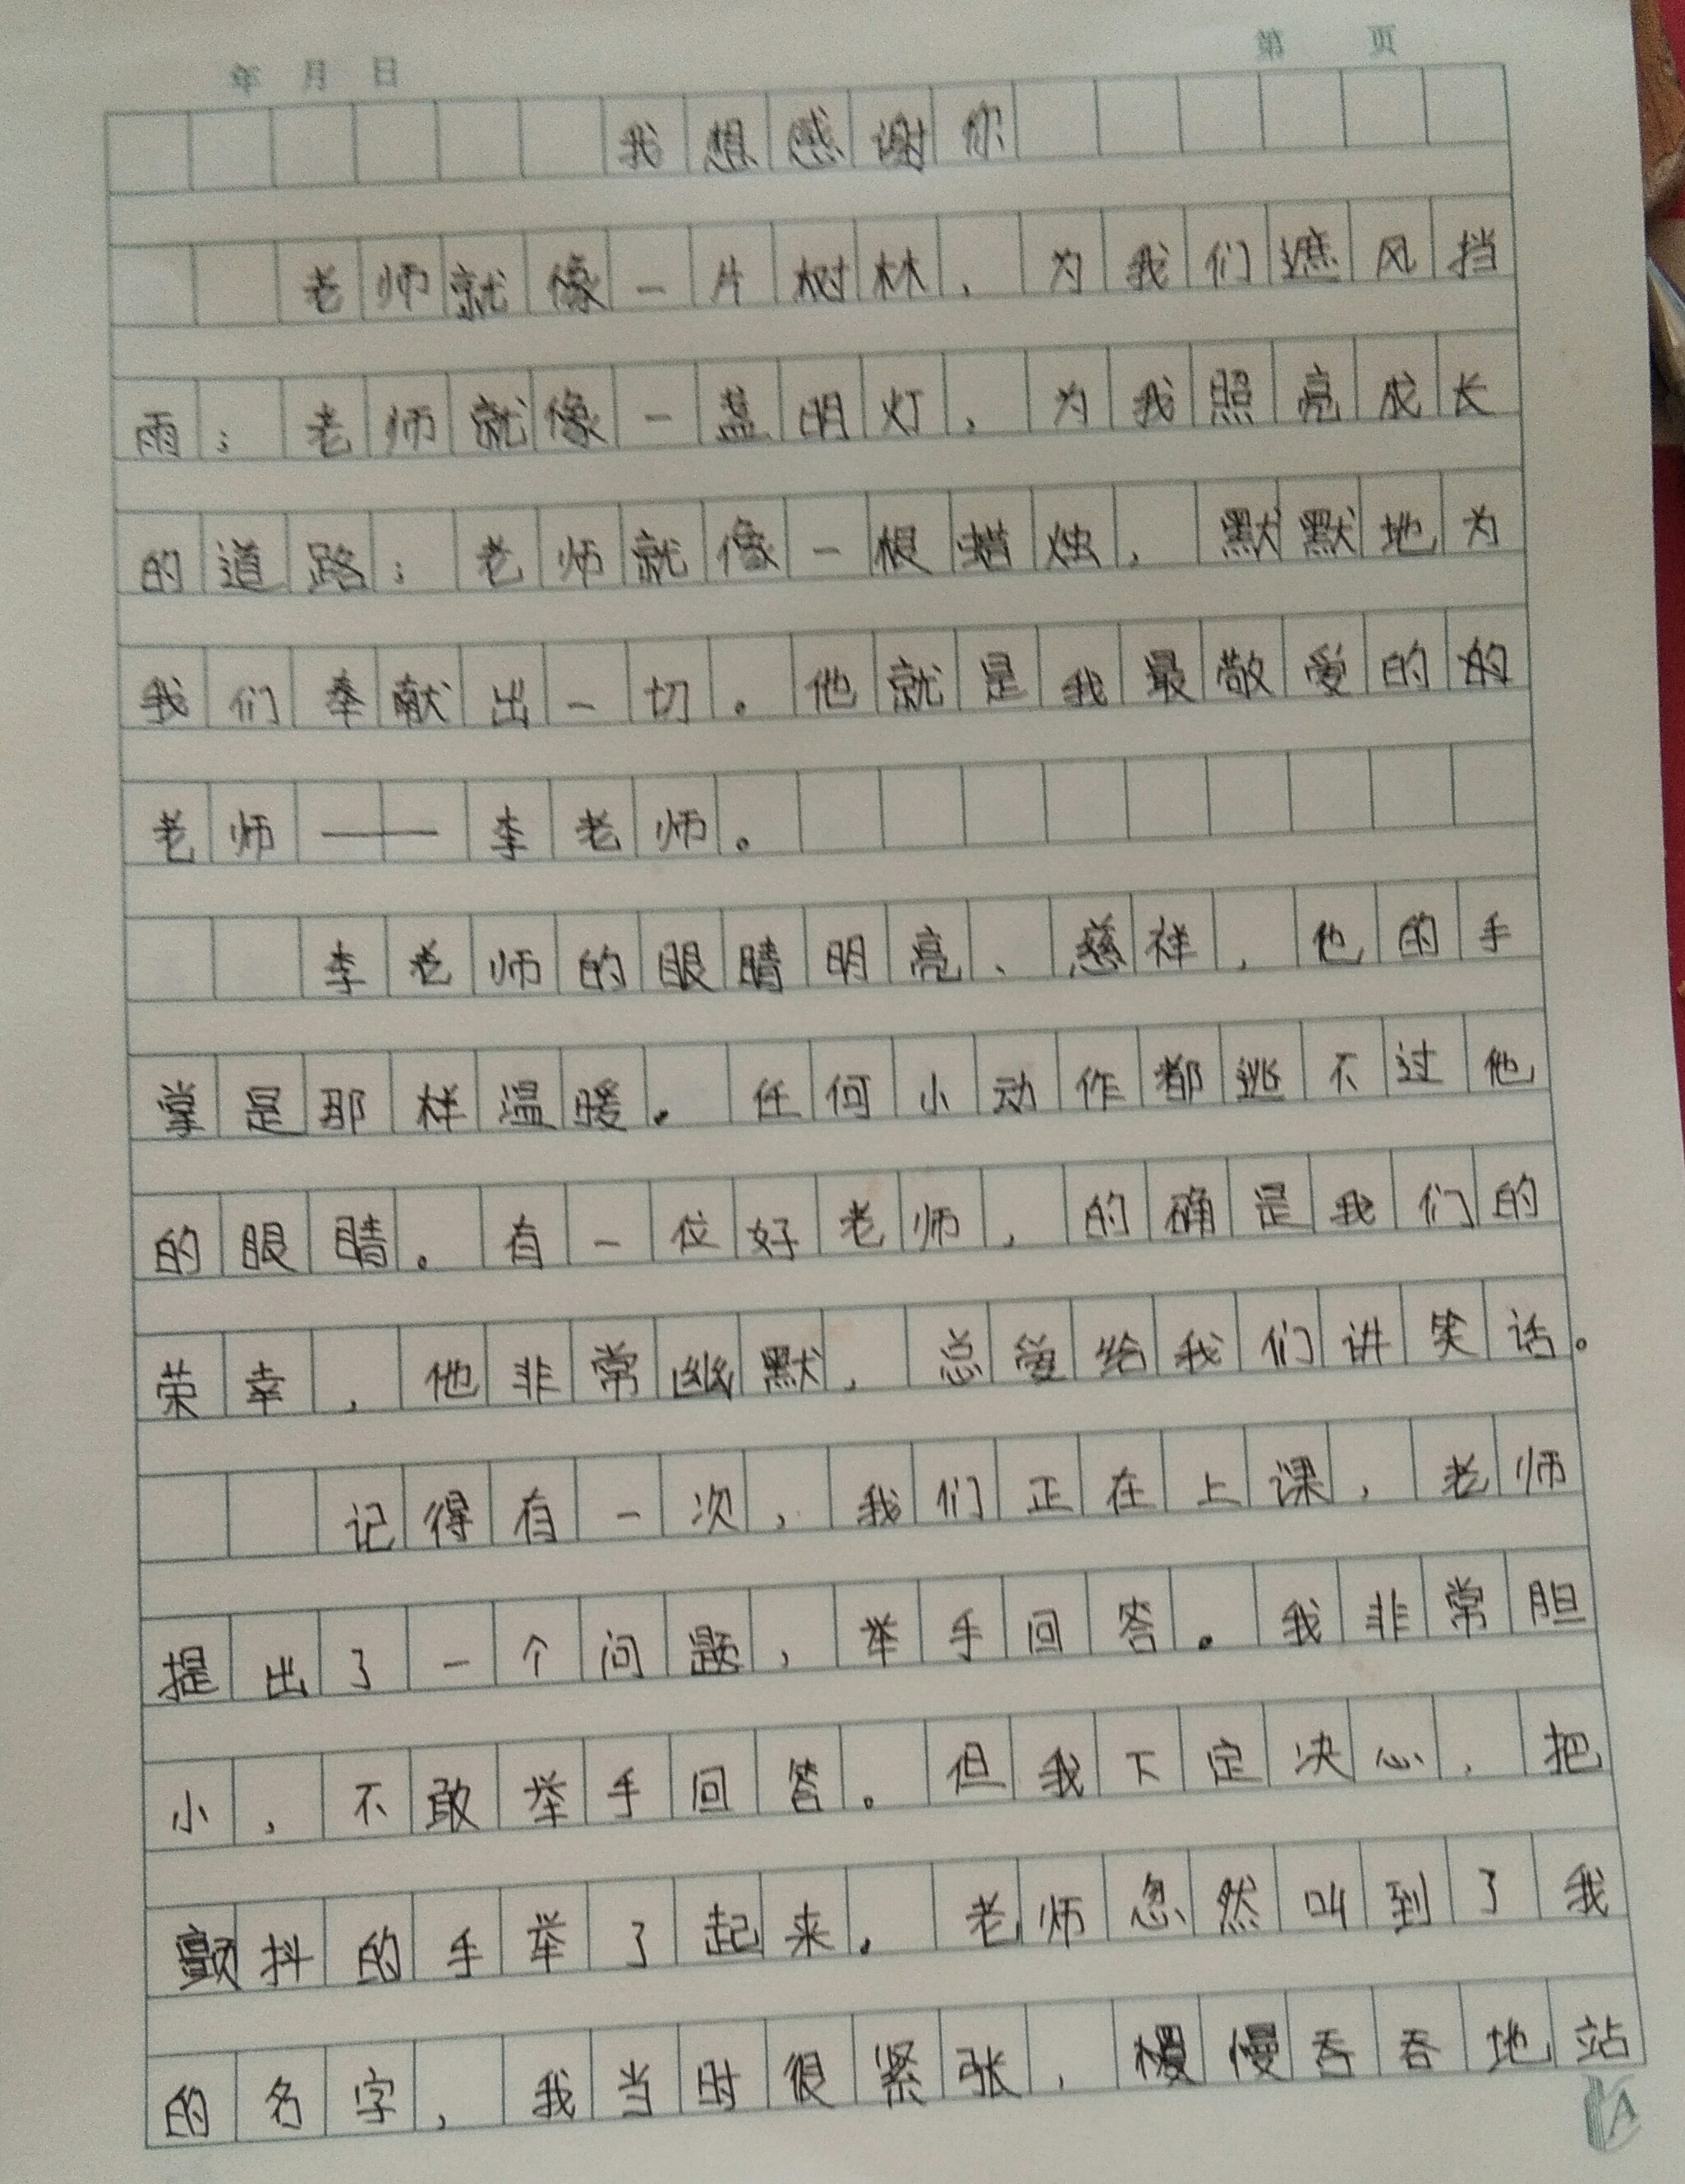 年 月 日 第 页
我想感谢你
老师就像一片树林，为我们遮风挡
雨；老师就像一盏明灯，为我照亮成长
的道路；老师就像一根蜡烛，默默地为
我们奉献出一切。他就是我最敬爱的的
老师——李老师。
李老师的眼睛明亮、慈祥，他的手
掌是那样温暖。任何小动作都逃不过他
的眼睛。有一位好老师，的确是我们的
荣幸，他非常幽默，总爱给我们讲笑话。
记得有一次，我们正在上课，老师
提出了一个问题，举手回答。我非常胆
小，不敢举手回答。但我下定决心，把
颤抖的手举了起来。老师忽然叫到了我
的名字，我当时很紧张，慢慢吞吞地站